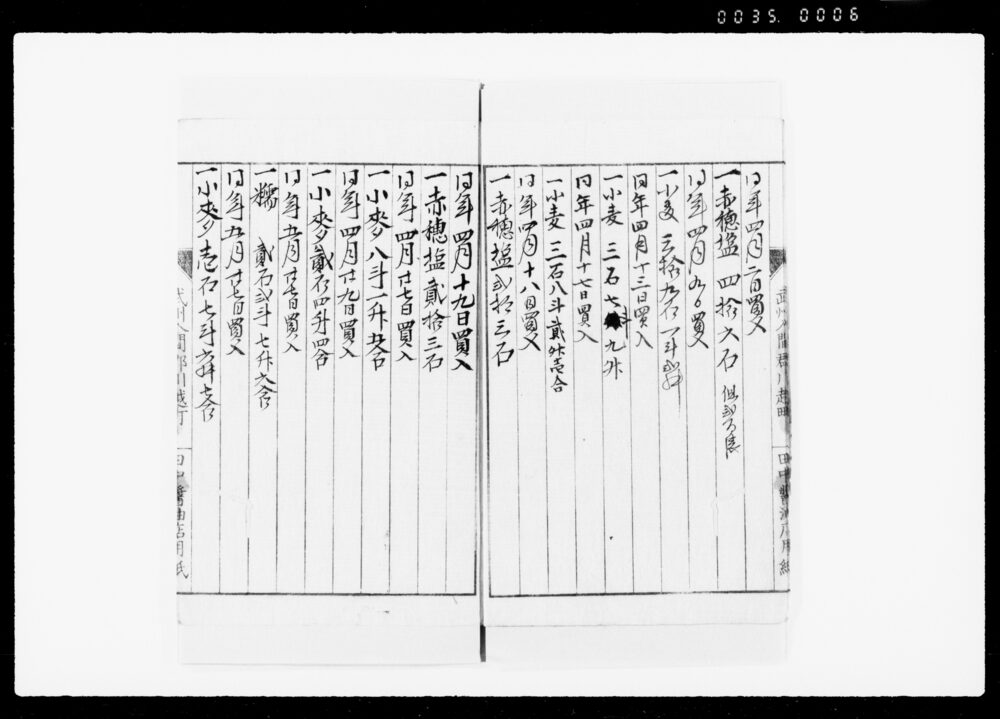 0035. 0006
同年四月二日買入
一赤穂塩 四拾六石 但弐百俵
同年四月九日買入
一小麦 三拾九石一斗
同年四月十三日買入
一小麦 三石七斗九升
同年四月十七日買入
一小麦 三石八斗貮升壱合
同年四月十八日買入
一赤穂塩弐拾三石
同年四月十九日買入
一赤穂塩貮拾三石
同年四月廿七日買入
一小麥八斗一升五合
同年四月廿九日買入
一小麥貮石四升四合
同年五月廿七日買入
一糯 貮石弐斗七升六合
同年五月廿七日買入
一小麥壱石七斗
武州入間郡川越町 田中醤油店用紙